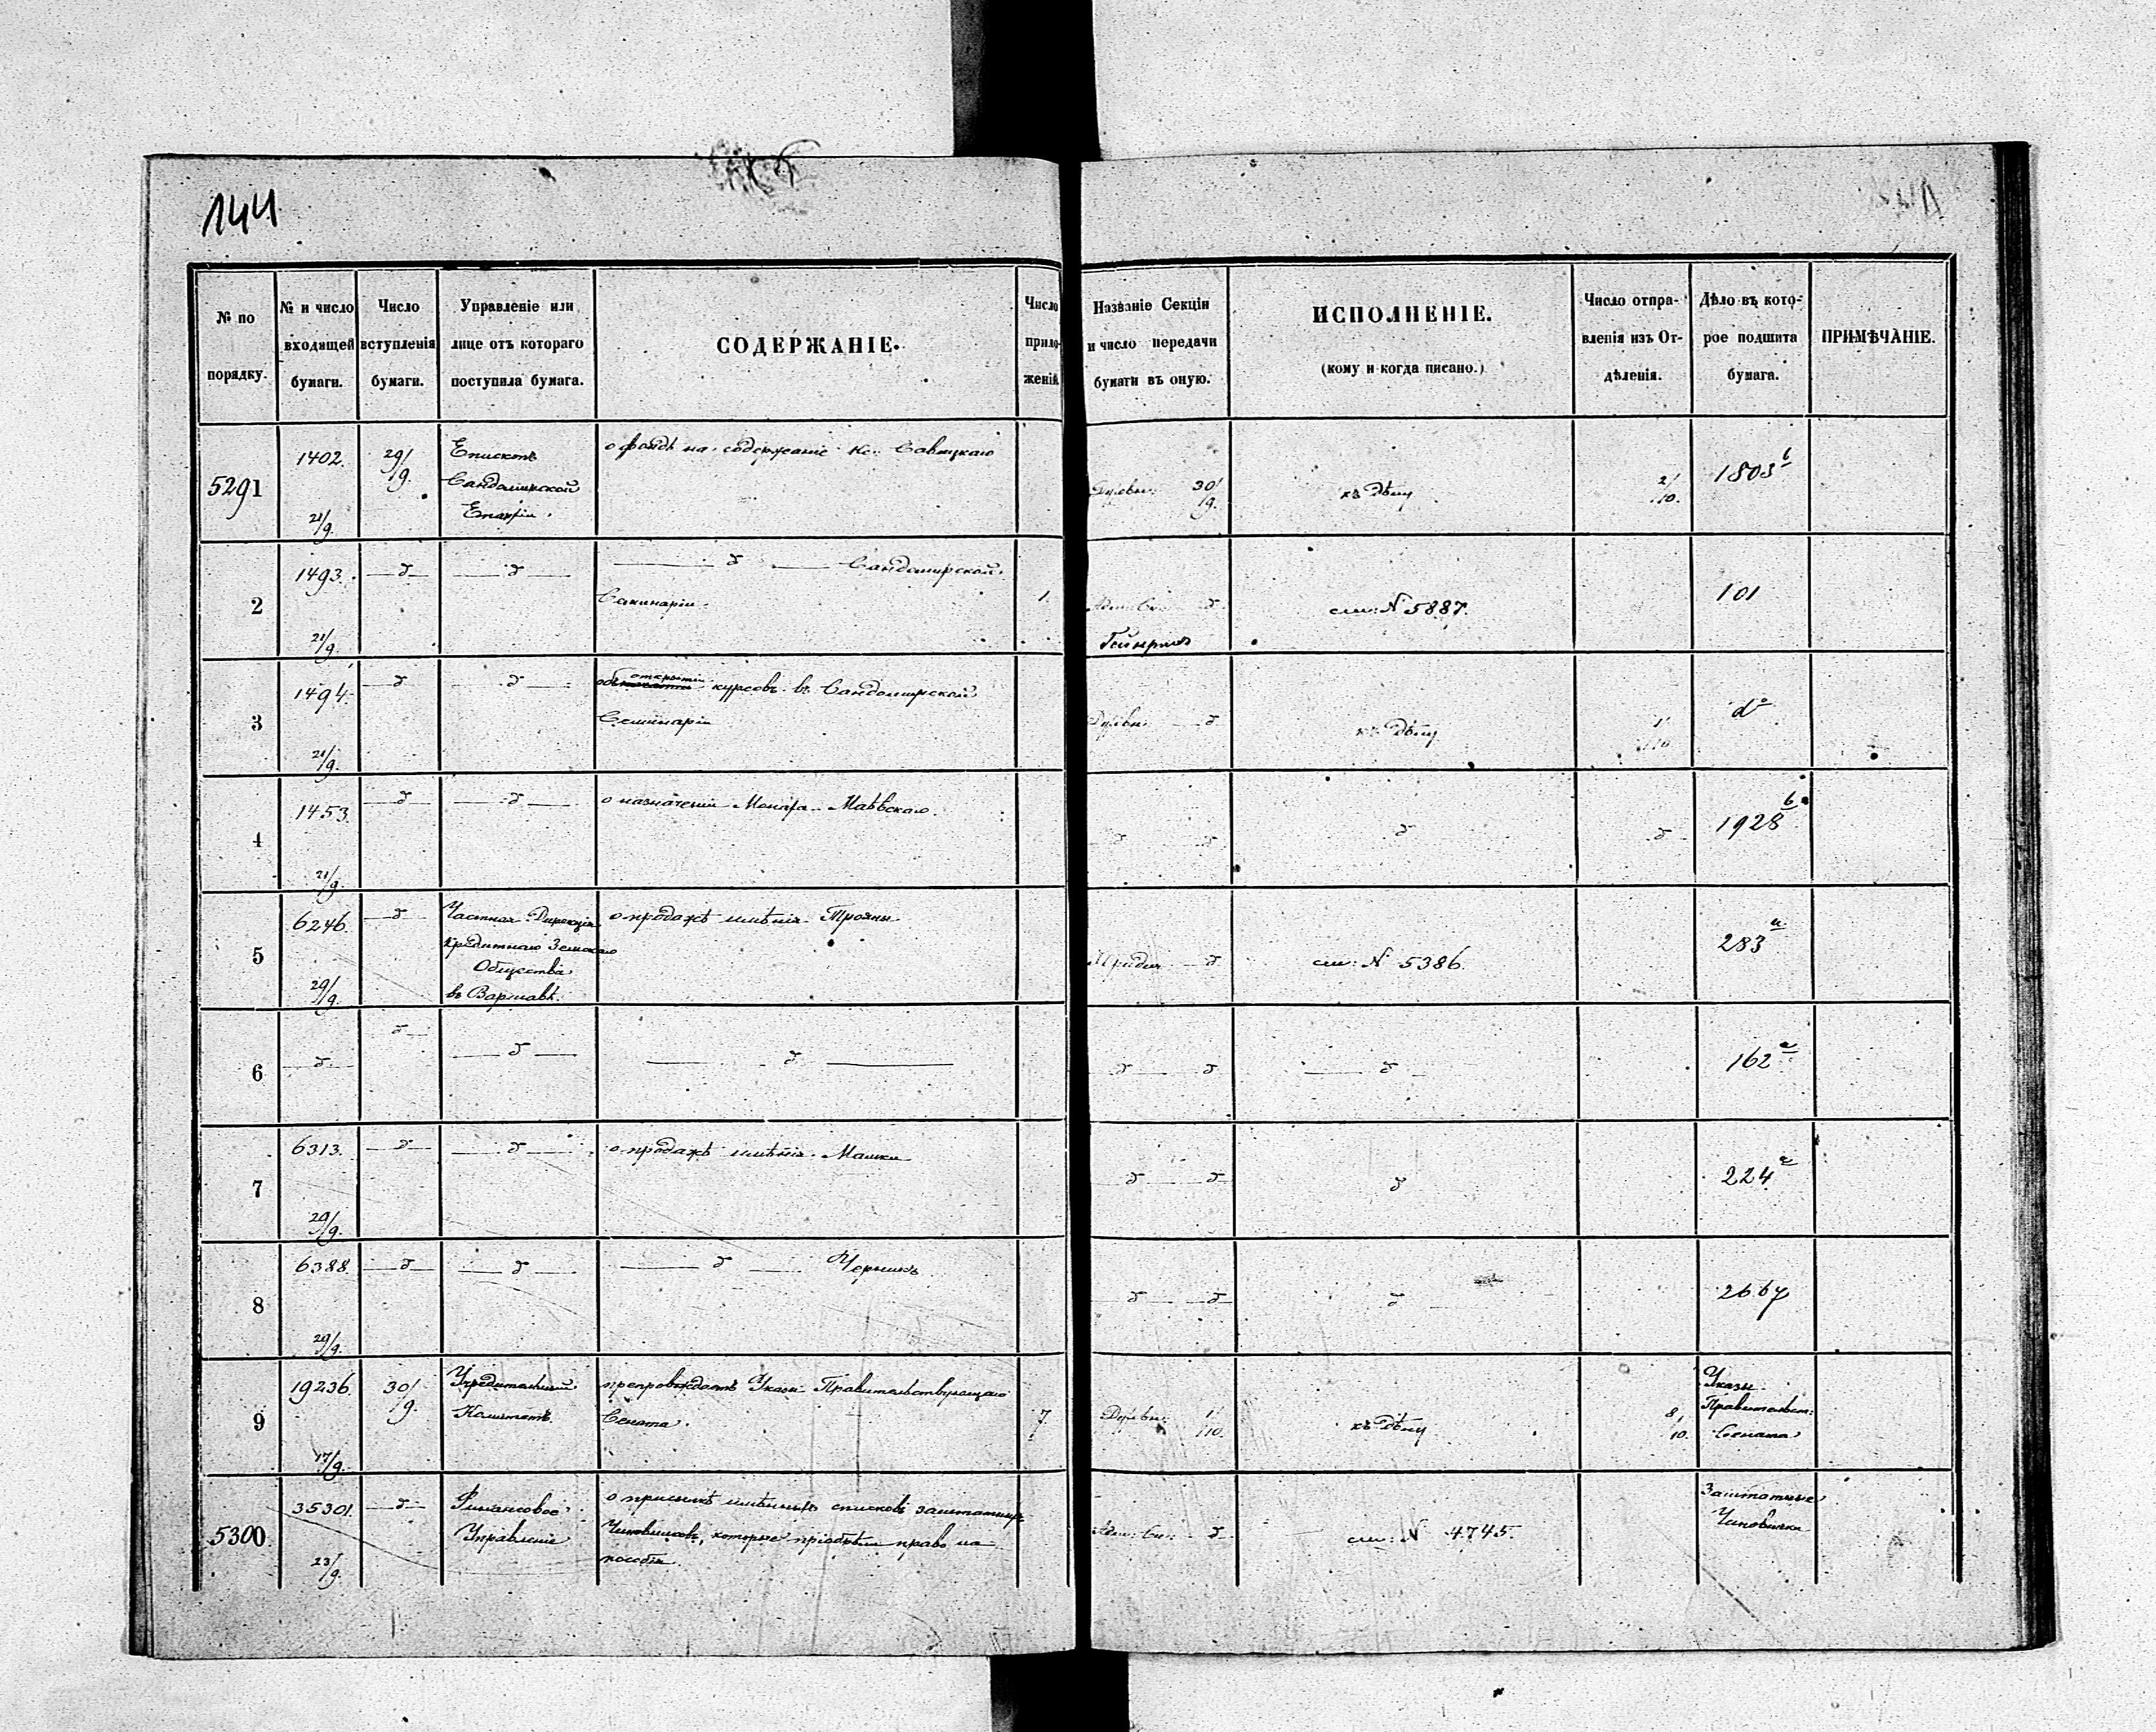 144
№ по порядку.
№ и число входящей бумаги.
Число вступленія бумаги.
Управленіе или лице отъ котораго поступила бумага.
СОДЕРЖАНІЕ.
Число приложеній
Названіе Секціи и число передачи бумаги въ оную.
ИСПОЛНЕНІЕ.
(кому и когда писано.)
Число отправленія изъ Отдѣленія.
Дѣло въ которое подшита бумага.
ПРИМѢЧАНІЕ.
5291
1402.
21/9.
29/9.
Епископъ
Сандомирской
Епархіи.
о фондѣ на содержаніе Кс. Савицкаго
30/9.
къ дѣлу
2/10.
1803 b
2
1493.
21/9.
д
д
д Сандомирской
Семинаріи.
1.
Адм: Сп: д
см: N 5887.
101
3
1494.
21/9.
д
д
открытіи
курсовъ въ Сандомирской
Семинаріи
д
къ дѣлу
1/10
dº
4
1453.
21/9.
д
д
о назначеніи Монаха Маевскаго.
д д
д
д
1928 b
5
6246.
29/9.
д
Частная Дирекція
Кредитнаго Земскаго
Общества
въ Варшавѣ.
о продажѣ имѣнія Трояны.
д
см: N 5386.
283 a
6
д
д
д
д
д д
д
162 a
7
6313.
29/9.
д
д
о продажѣ имѣнія
д д
д
224 a
8
6388.
29/9.
д
д
д
д д
д
2667
9
19236.
17/9.
30/9.
Учредительный
Комитетъ.
препровождаетъ Указы Правительствующаго
Сената.
7.
1/10.
къ дѣлу
8/10.
Указы
Правительст:
Сената
5300
35301.
23/9.
д
Финансовое
Управленіе
о присылкѣ имѣнныхъ списковъ заштатныхъ
Чиновниковъ, которые пріобрѣли право на
пособія.
Адм: Сп: д
см: N 4745.
Заштатные
Чиновники